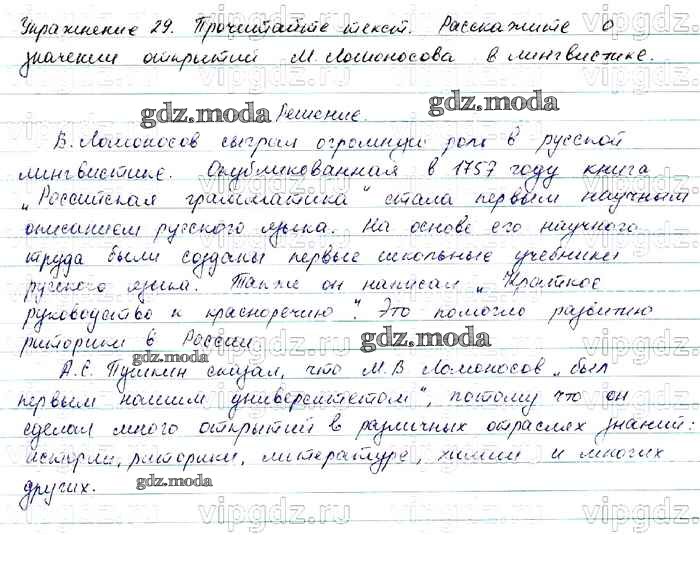 Упражнение 29. Прочитайте текст. Расскажите о
значении открытий М. Ломоносова в лингвистике.
gdz.moda Решение. gdz.moda
В. Ломоносов сыграл огромную роль в русской
лингвистике. Опубликованная в 1757 году книга
„Российская грамматика“ стала первым научным
описанием русского языка. На основе его научного
труда были созданы первые школьные учебники
русского языка. Также он написал „Краткое
руководство к красноречию“. Это помогло развитию
риторики в России
gdz.moda gdz.moda
А.С. Пушкин сказал, что М.В Ломоносов „был
первым нашим университетом“, потому что он
сделал много открытий в различных отраслях знаний:
истории, риторики, литературе, химии и многих
других.
gdz.moda gdz.moda
vipgdz.ru